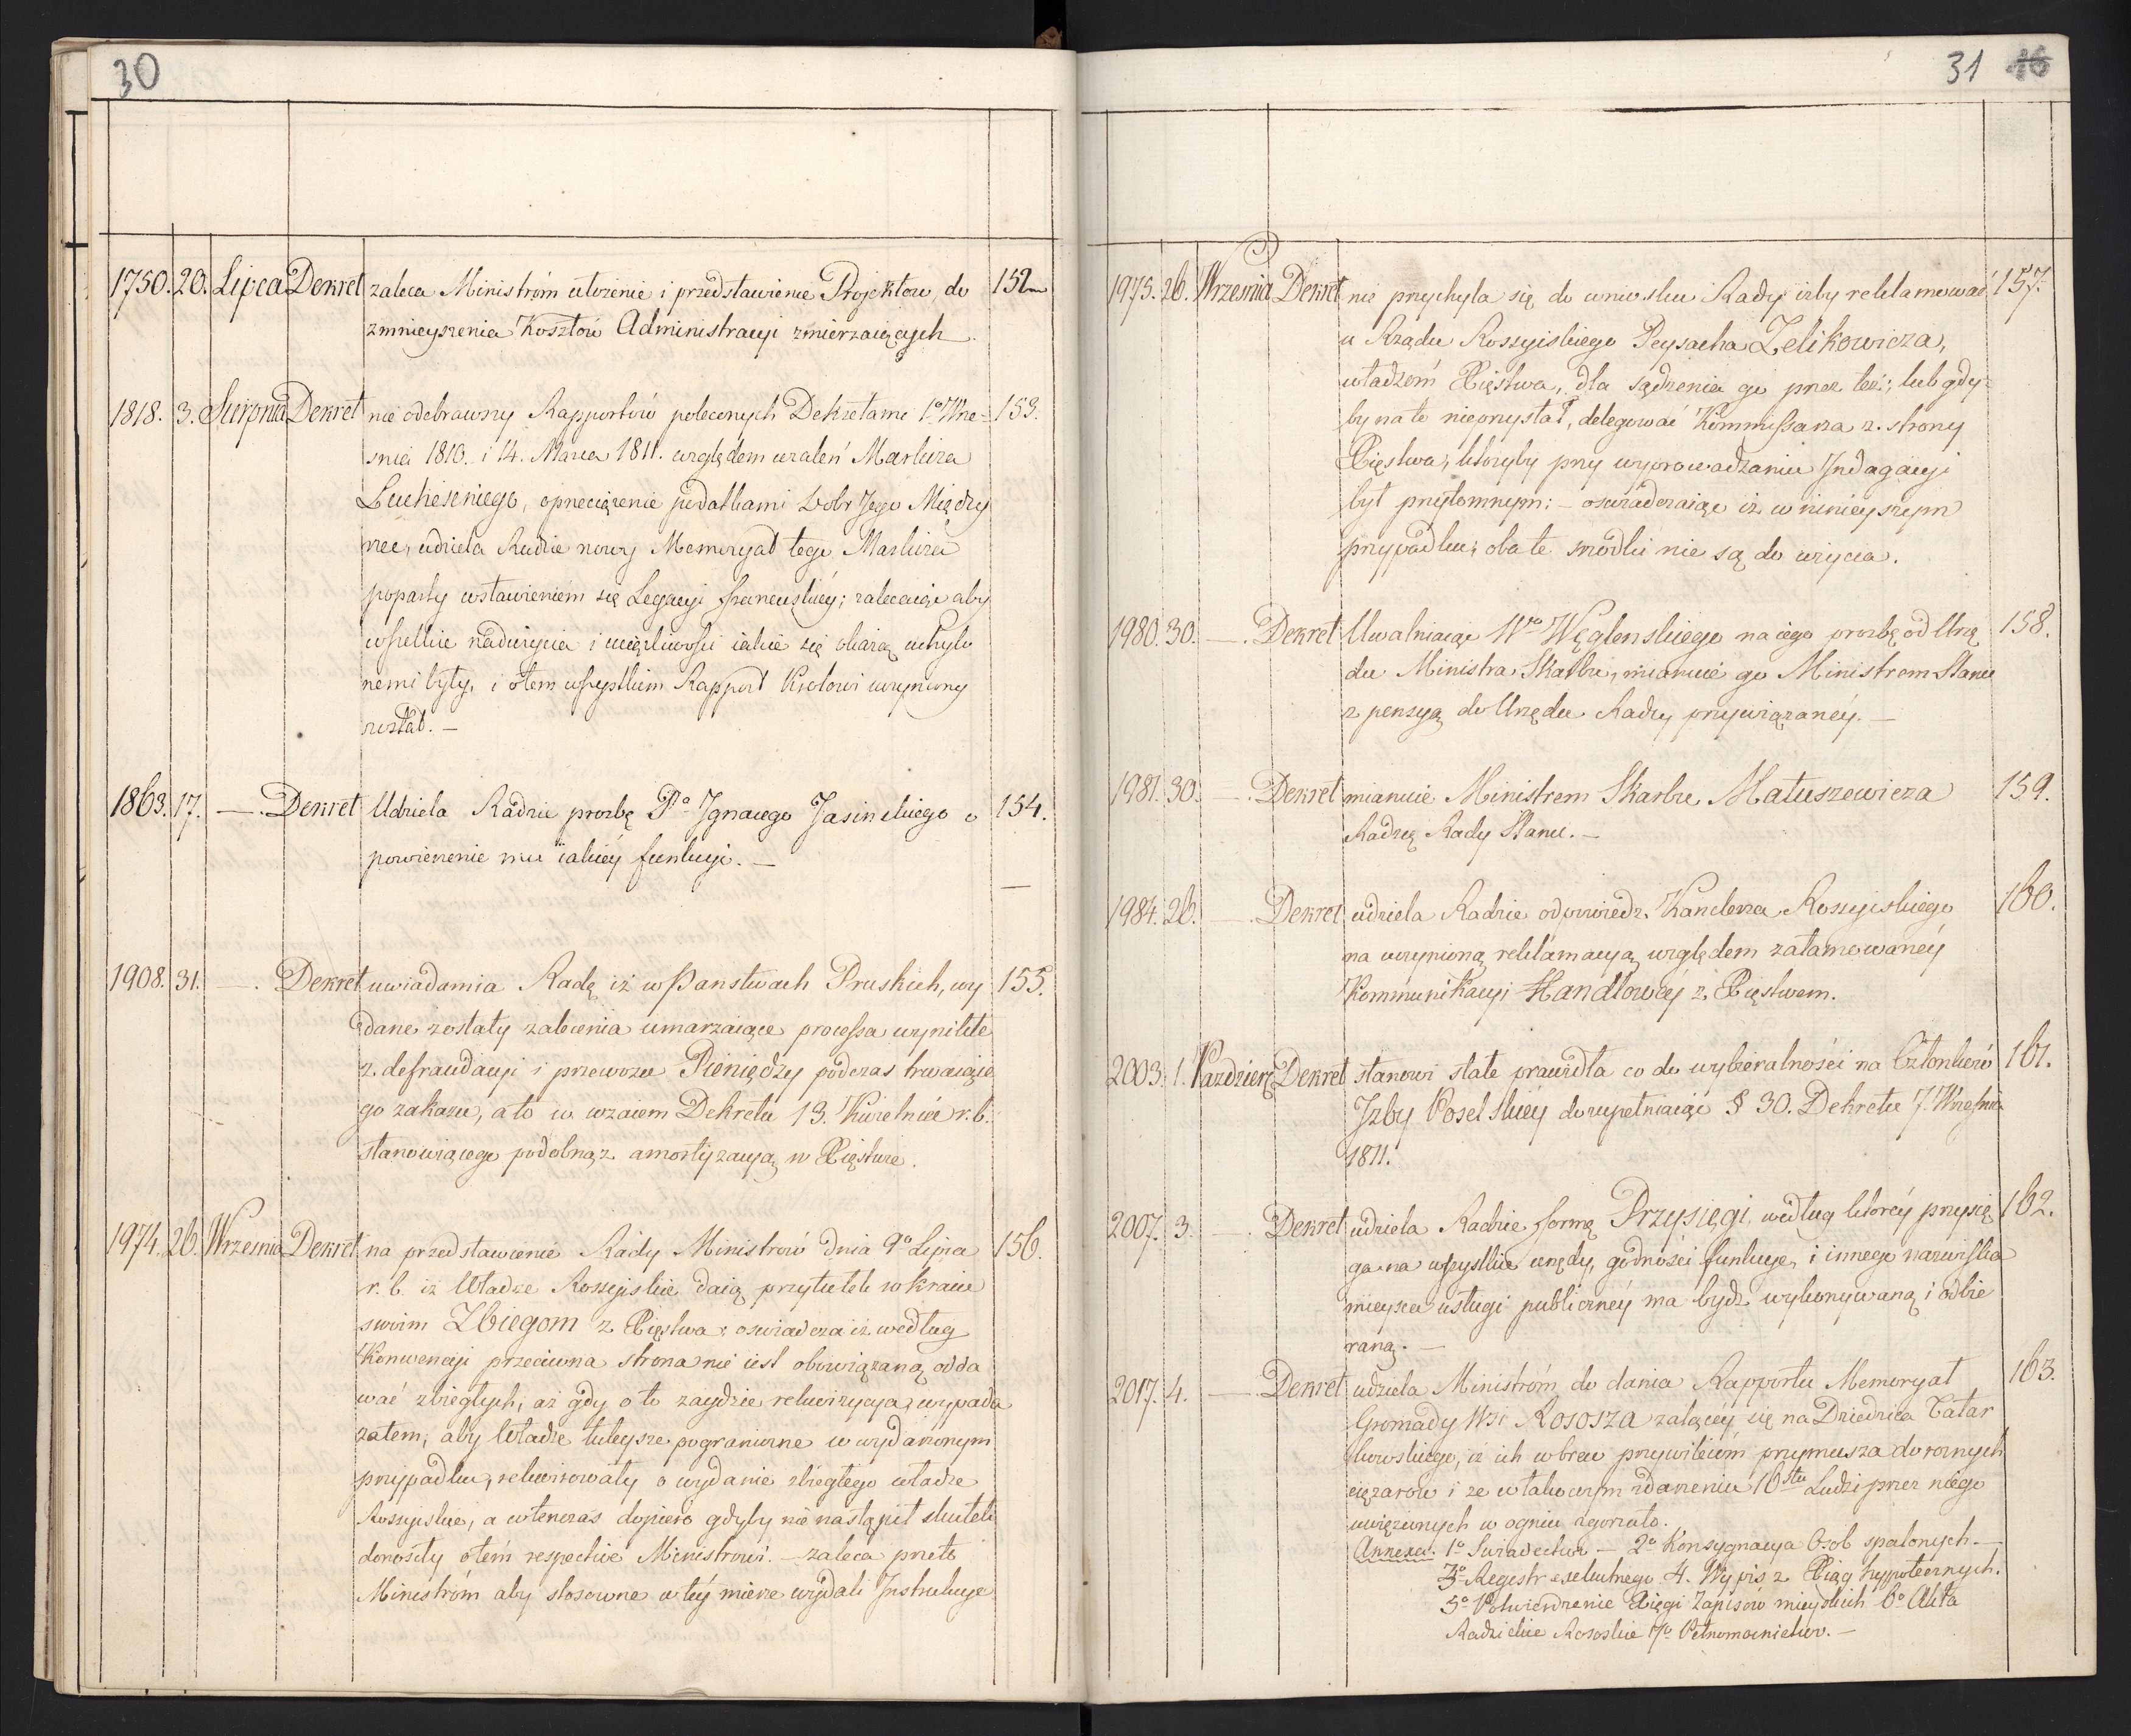 30
1750. 20. Lipca Dekret zaleca Ministróm ułożenie i przedstawienie Projektow, do 152
zmnieyszenia Kosztów Administracyi zmierzaiących.
1818. 3. Sierpnia Dekret nie odebrawszy Rapportów poleconych Dekretami 1º Wrze- 153.
snia 1810. i 14. Marca 1811. względem użaleń Markiza
Lucheseniego, o przeciążenie podatkami Dobr Jego Między
rzec, udziela Radzie nowy Memoryał tego Markiza
poparty wstawieniém się Legacyi francuskiéy; zalecaiąc aby
wszelkie nadużycia i uciążliwości iakie się okażą uchylo
nemi były, i o tem wszystkim Rapport Krolowi uczyniony
został. —
1863. 17. —. Dekret Udziela Radzie prozbę Pº Ignacego Jasinskiego o 154.
powierzenie mu iakiéy funkcyi. —
1908. 31. —. Dekret uwiadamia Radę iż w Panstwach Pruskich, wy 155.
dane zostały zalecenia umarzaiące processa wynikłe
z defraudacyi i przewozu Pieniędzy podczas trwaiące
go zakazu, a to w wzaiem Dekretu 13. Kwietnia r. b.
stanowiącego podobnąż amortyzacyą w Xięstwie.
1974. 26. Wrzesnia Dekret na przedstawienie Rady Ministrów dnia 9º Lipca 156.
r. b. iż Władze Rossyiskie daią przytułek w kraiu
swoim Zbiegom z Xięstwa; oswiadcza iż według
Konwencyi przeciwna strona nie iest obowiązaną odda
wać zbiegłych, aż gdy o to zaydzie rekwizycya, wypada
zatem, aby Władze tuteysze pograniczne w wydarzonym
przypadku, rekwirowały o wydanie zbiegłego władze
Rossyiskie, a wtenczas dopiero gdyby nie nastąpił skutek
donosiły o tém respective Ministrowi. — zaleca przeto
Ministróm aby stosowne w téy mierze wydali Instrukcye
31 16
1975. 26. Wrzesnia Dekret nie przychyla się do wniosku Rady iżby reklamować 157.
u Rządu Rossyiskiego Peysacha Zelikowicza,
władzóm Xięstwa, dla sądzenia go przez też; lub gdy-
by na to nie przystał, delegować Kommissarza z strony
Xięstwa, któryby przy wyprowadzaniu Indagacyi
był przytomnym: — oswiadczaiąc iż w ninieyszym
przypadku, oba te srodki nie są do użycia.
1980. 30. —. Dekret Uwalniaiąc Wº Węglenskiego na iego prozbę od Urzę 158.
du Ministra Skarbu, mianuie go Ministrem Stanu
z pensyą do Urzędu Radzcy przywiązanéy. —
1981. 30. —. Dekret mianuie Ministrem Skarbu Matuszewicza 159.
Radzcę Rady Stanu. —
1984. 26. —. Dekret udziela Radzie odpowiedz Kanclerza Rossyiskiego 160.
na uczynioną reklamacyą względem zatamowanéy
Kommunikacyi Handlowéy z Xięstwem.
2003. 1. Pazdzier. Dekret stanowi stałe prawidła co do wybieralności na Członków 161.
Izby Poselskiéy dozupełniaiąc § 30. Dekretu 7. Wrzesnia
1811.
2007. 3. —. Dekret udziela Radzie formę Przysięgi, według któréy przysię 162.
ga na wszystkie urzędy, godności funkcye, i innego nazwiska
mieysca usługi publicznéy ma bydz wykonywaną i odbie
raną. —
2017. 4. —. Dekret udziela Ministróm do dania Rapportu Memoryał 163.
Gromady Wsi Rososza żalącey się na Dziedzica Tatar
kowskiego, iż ich wbrew przywileióm przymusza do roznych
ciężarów i że w takowym zdarzeniu 16stu Ludzi przez niego
uwięzionych w ogniu zgorzało.
Annexa. 1º Swiadectwa — 2º Konsygnacya Osob spalonych. —
3º Regestr exekutnego 4. Wypis z Xiąg hypotecznych.
5º Potwierdzenie Xięgi Zapisów mieyskich 6º Akta
Radzieckie Rososkie 7º Pełnomocnictwo. —